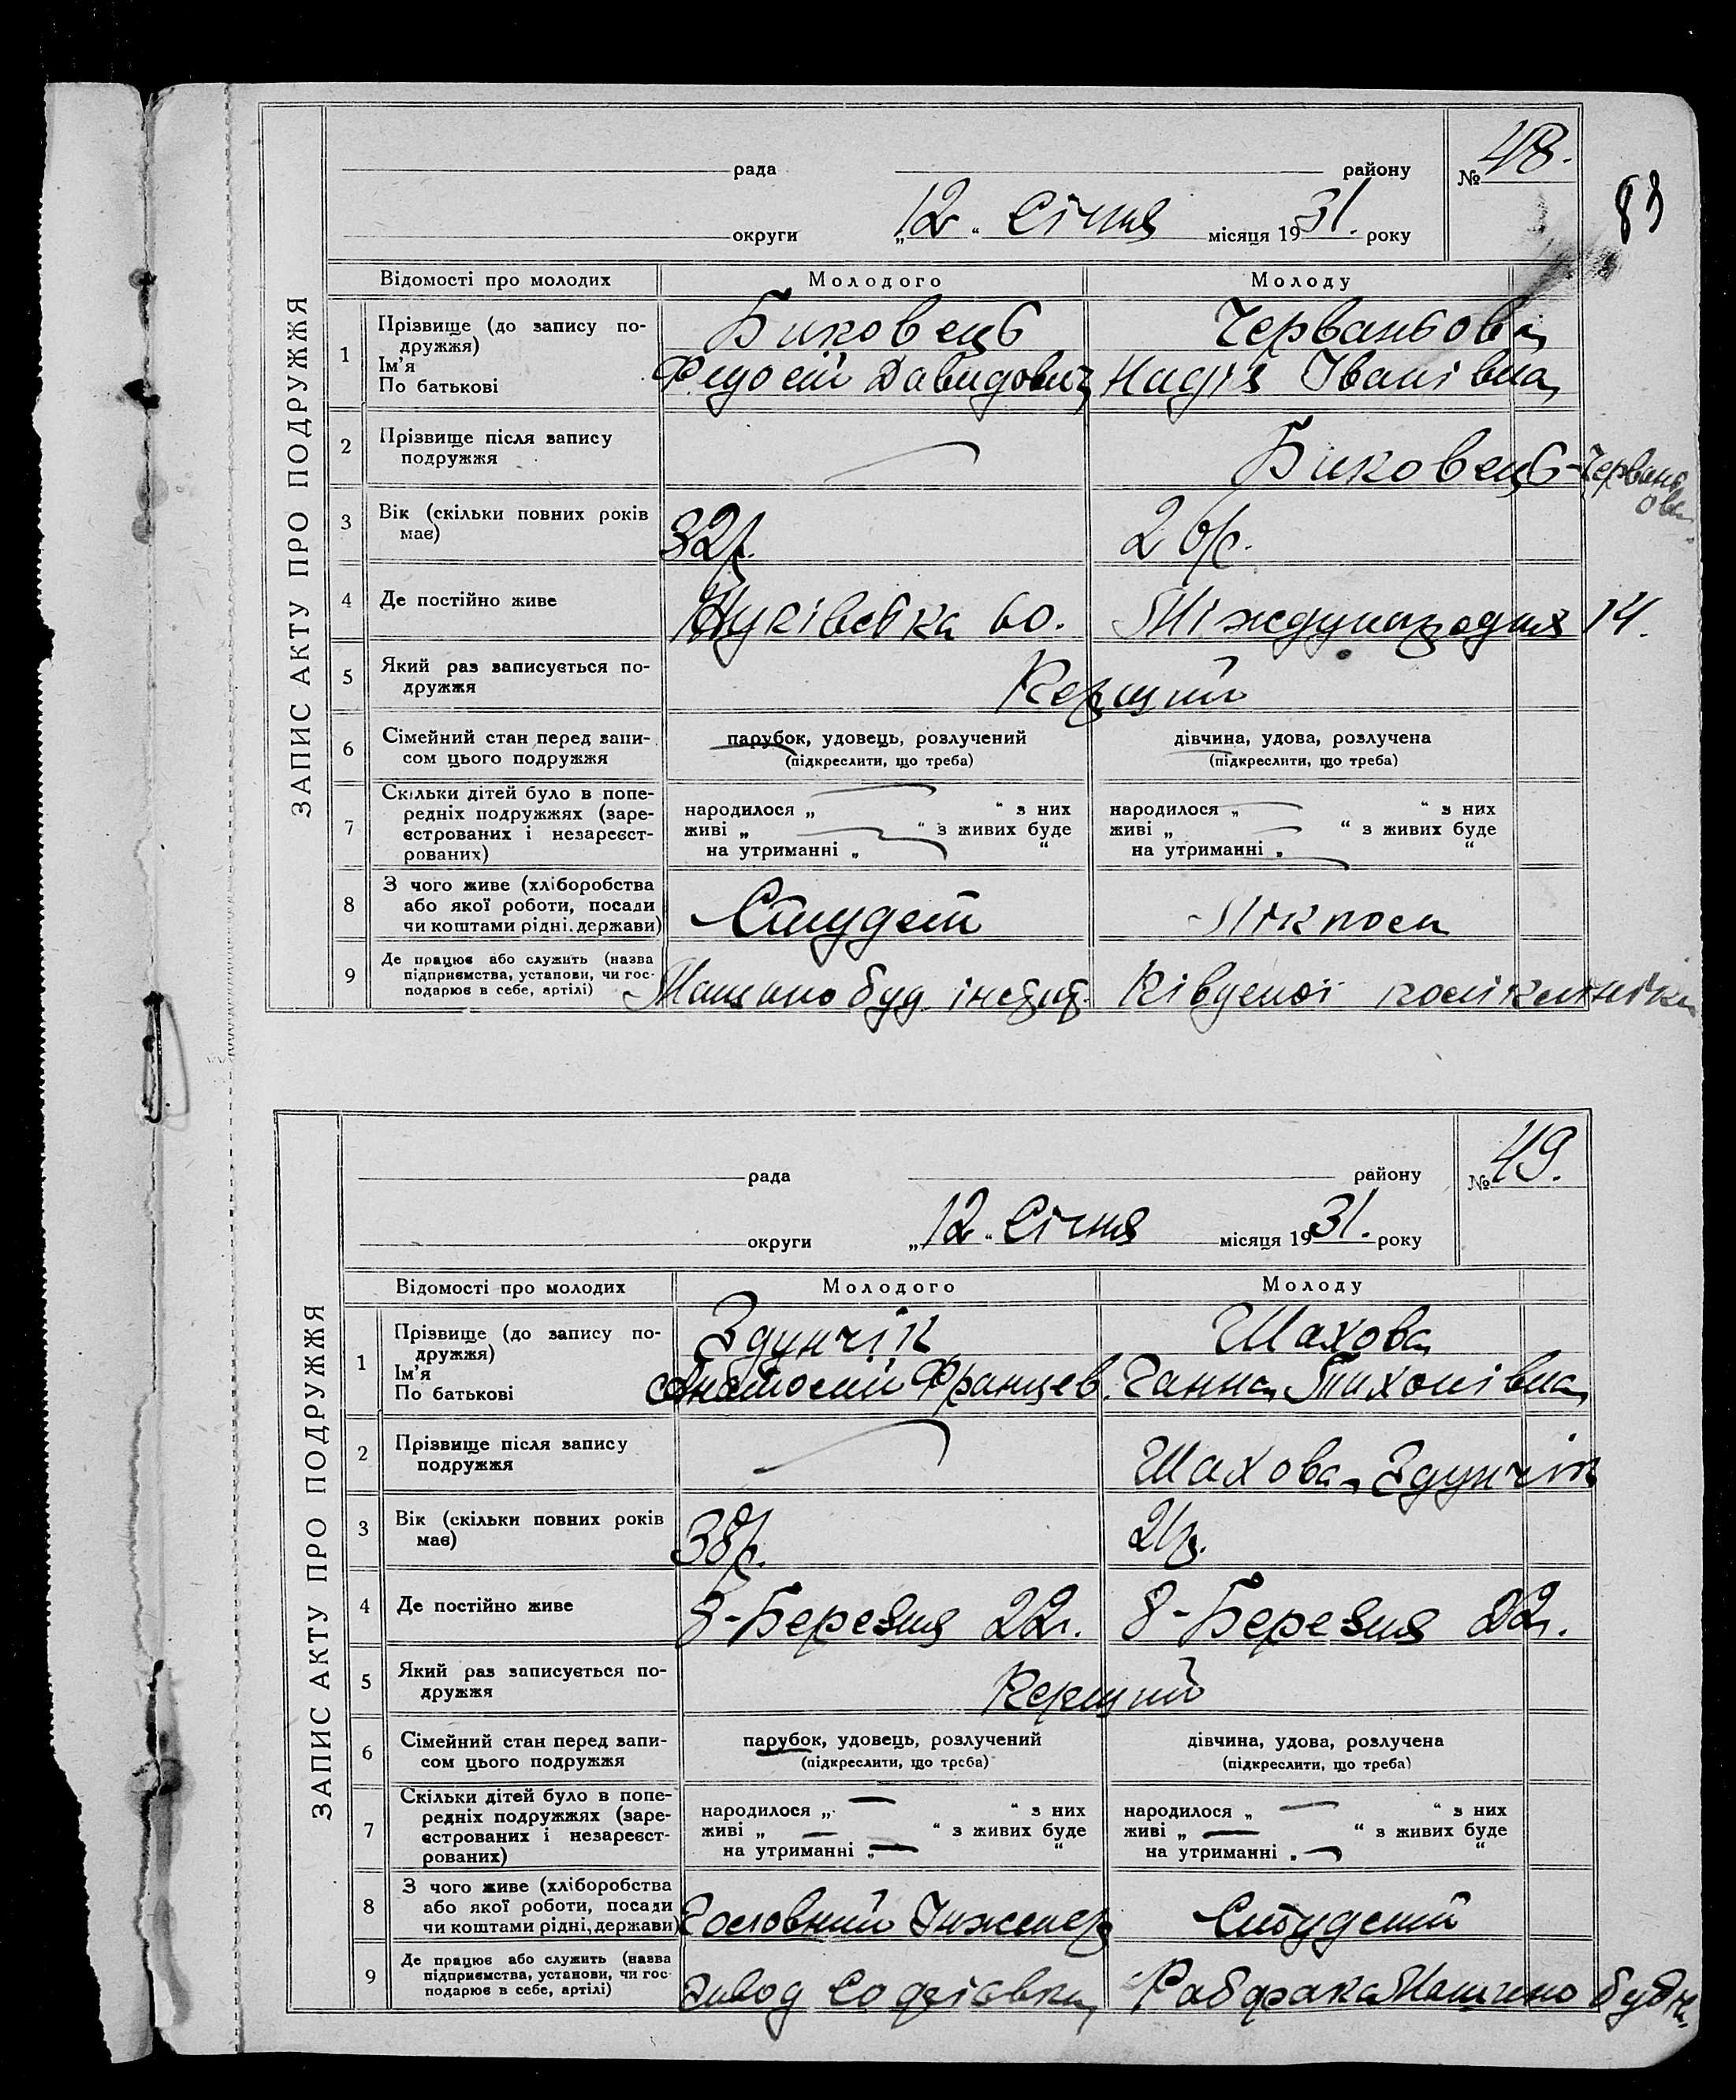 83
ЗАПИС АКТУ ПРО ПОДРУЖЖЯ
рада району № 48.
округи „12“ Січня місяця 1931. року
Відомості про молодих Молодого Молоду
1 Прізвище (до запису по- Биковець Червоньова
дружжя)
Ім'я Федосій Давидович Надія Іванівна
По батькові
2 Прізвище після запису Биковець-Червонь
подружжя ова
3 Вік (скільки повних років 32р. 26р.
має)
4 Де постійно живе 60. Міждународня 14.
5 Який раз записується по- Перший
дружжя
6 Сімейний стан перед запи- парубок, удовець, розлучений дівчина, удова, розлучена
сом цього подружжя (підкреслити, що треба) (підкреслити, що треба)
7 Скільки дітей було в попе-
редніх подружжях (заре- народилося „ “ з них народилося „ “ з них
єстрованих і незареєст- живі „ “ з живих буде живі „ “ з живих буде
рованих) на утриманні „ “ на утриманні „ “
8 З чого живе (хліборобства
або якої роботи, посади Студент Лікпом
чи коштами рідні, держави)
9 Де працює або служить (назва
підприємства, установи, чи гос- Машинобуд. інстит. Південої поліклініки
подарює в себе, артілі)
ЗАПИС АКТУ ПРО ПОДРУЖЖЯ
рада району № 49.
округи „12“ Січня місяця 1931. року
Відомості про молодих Молодого Молоду
1 Прізвище (до запису по- Здунчік Шахова
дружжя)
Ім'я Анатолій Францев. Ганна Тихонівна
По батькові
2 Прізвище після запису Шахова-Здунчік
подружжя
3 Вік (скільки повних років 38р. 21р.
має)
4 Де постійно живе 8-Березня 22. 8-Березня 22.
5 Який раз записується по- Перший
дружжя
6 Сімейний стан перед запи- парубок, удовець, розлучений дівчина, удова, розлучена
сом цього подружжя (підкреслити, що треба) (підкреслити, що треба)
7 Скільки дітей було в попе-
редніх подружжях (заре- народилося „ “ з них народилося „ “ з них
єстрованих і незареєст- живі „ “ з живих буде живі „ “ з живих буде
рованих) на утриманні „ “ на утриманні „ “
8 З чого живе (хліборобства
або якої роботи, посади Головний Інженер Студент
чи коштами рідні, держави)
9 Де працює або служить (назва
підприємства, установи, чи гос- Завод Рабфака Машинобудів.
подарює в себе, артілі)